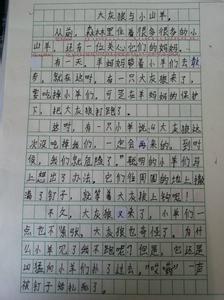 大灰狼与小山羊。
从前,森林里住着很多很多的小
山羊,还有一位关心它们的妈妈。
有一天,羊妈妈带着小羊们去
,就在这时,有一只大灰狼来了,
要吃掉小羊们,可是在羊妈妈的保护
下,把大灰狼打跑了。
这时,有一只小羊说:大灰狼这
次没吃掉我们,一定会再来的,到时
候,我们就危险了。聪明的小羊们马
上想出了办法,它们在周围的地上撒
满了钉子,就等着大灰狼上钩啦!
不久,大灰狼又来了,小羊们一
点也不紧张。大灰狼也奇怪了,为什
么小羊见了我不跑呢?但是,它还是
凶猛向小羊们扑了过去,“哎哟”一声
被钉子给扎跑了。